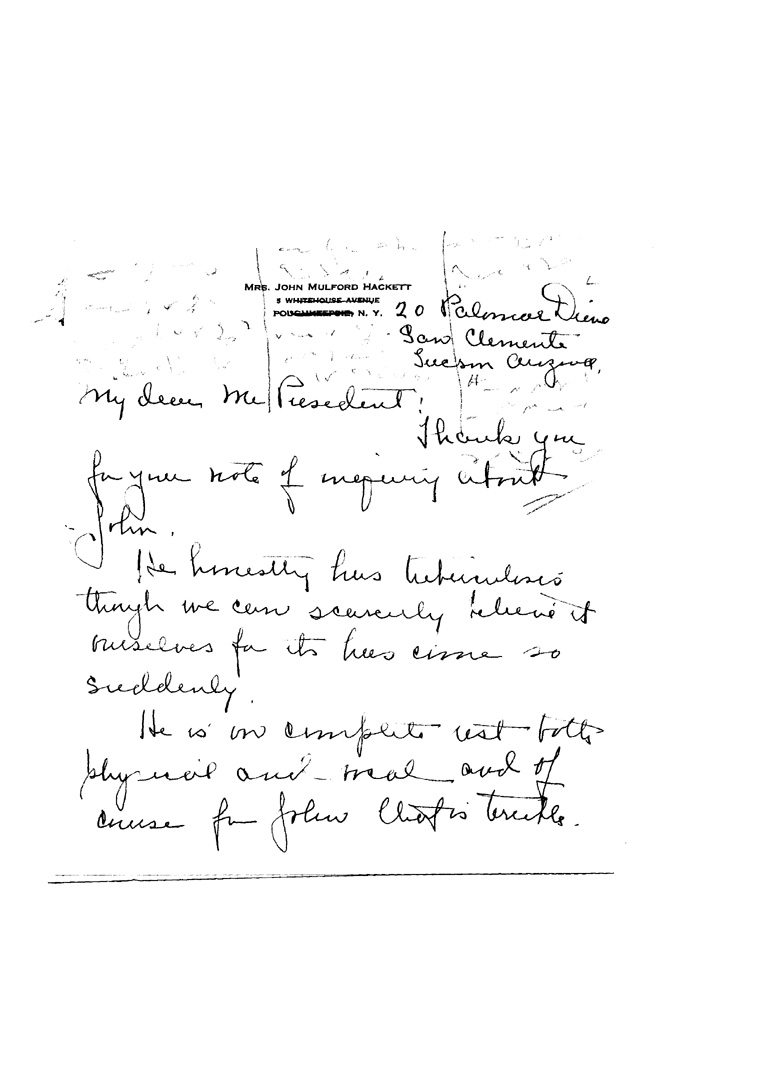 MRS. JOHN MULFORD HACKETT
5 WHITEHOUSE AVENUE
POUGHKEEPSIE, N. Y.
20 Palomar Drive
San Clemente
Tucson Arizona.
My dear Mr President!
Thank you
for your note of inquiry about
John.
He honestly has tuberculosis
though we can scarcely believe it
ourselves for its has come so
suddenly.
He is on complete rest both
physical and vocal and of
course for John that is terrible.